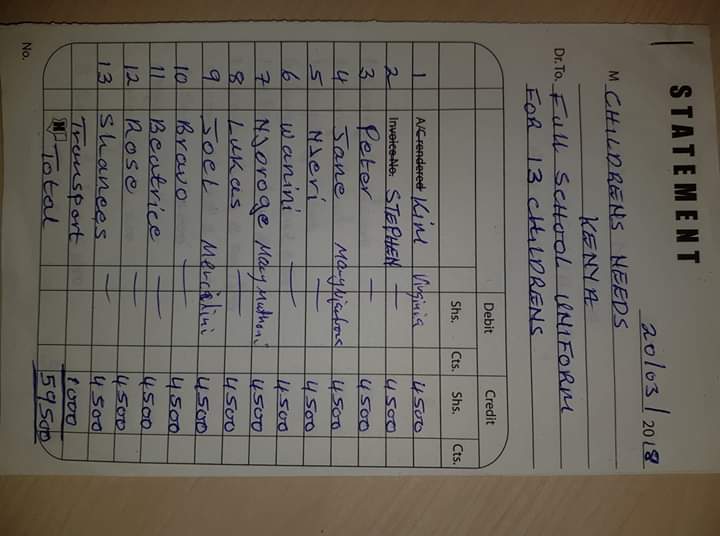 STATEMENT
20/03/2018
M CHILDRENS NEEDS
KENYA
Dr. To. FULL SCHOOL UNIFORM
FOR 13 CHILDRENS
Debit Credit
Shs. Cts. Shs. Cts.
1 A/C rendered Kim Virginia 4500
2 Invoice No. STEPHEN — 4500
3 Peter — 4500
4 Jane Mary 4500
5 Njeri — 4500
6 Wanini — 4500
7 Njoroge Mary Muthoni 4500
8 Lukas — 4500
9 Joel 4500
10 Bravo — 4500
11 Beatrice — 4500
12 Rose — 4500
13 Shances — 4500
Transport 1000
Total 59500
No.